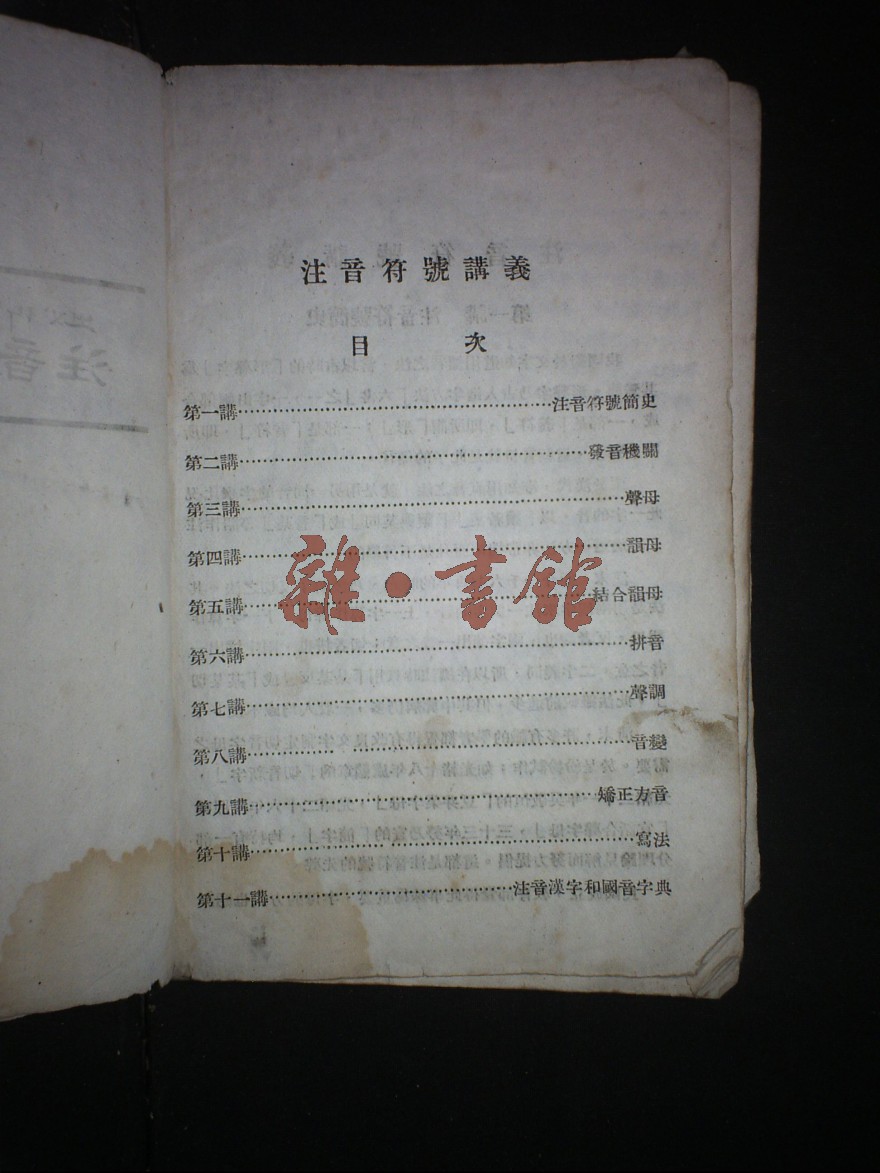 注音符號講義
目次
第一講……注音符號簡史
第二講……發音機關
第三講……聲母
第四講……韻母
第五講……結合韻母
第六講……拼音
第七講……聲調
第八講……音變
第九講……矯正方音
第十講……寫法
第十一講……注音漢字和國音字典
雜·書館
注音